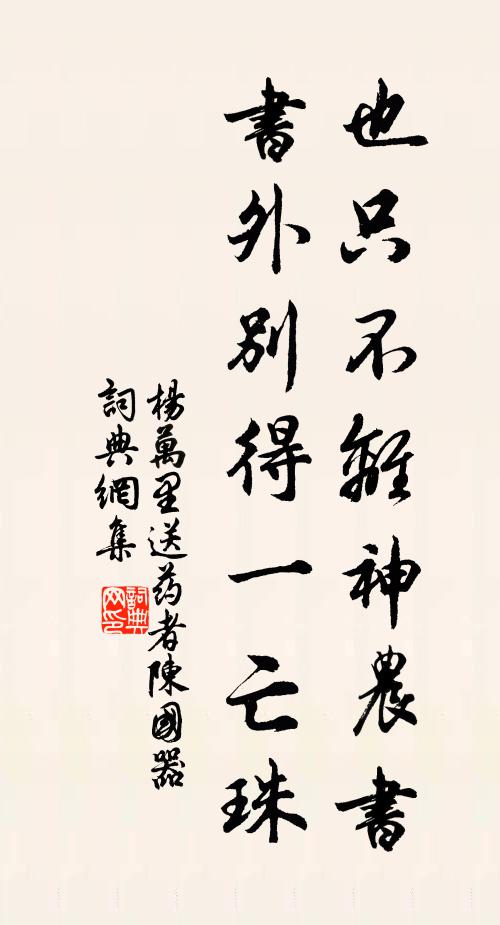 也只不離神農書
書外別得一亡珠
楊萬里送药者陳國器
詞典網集
詞典
网印